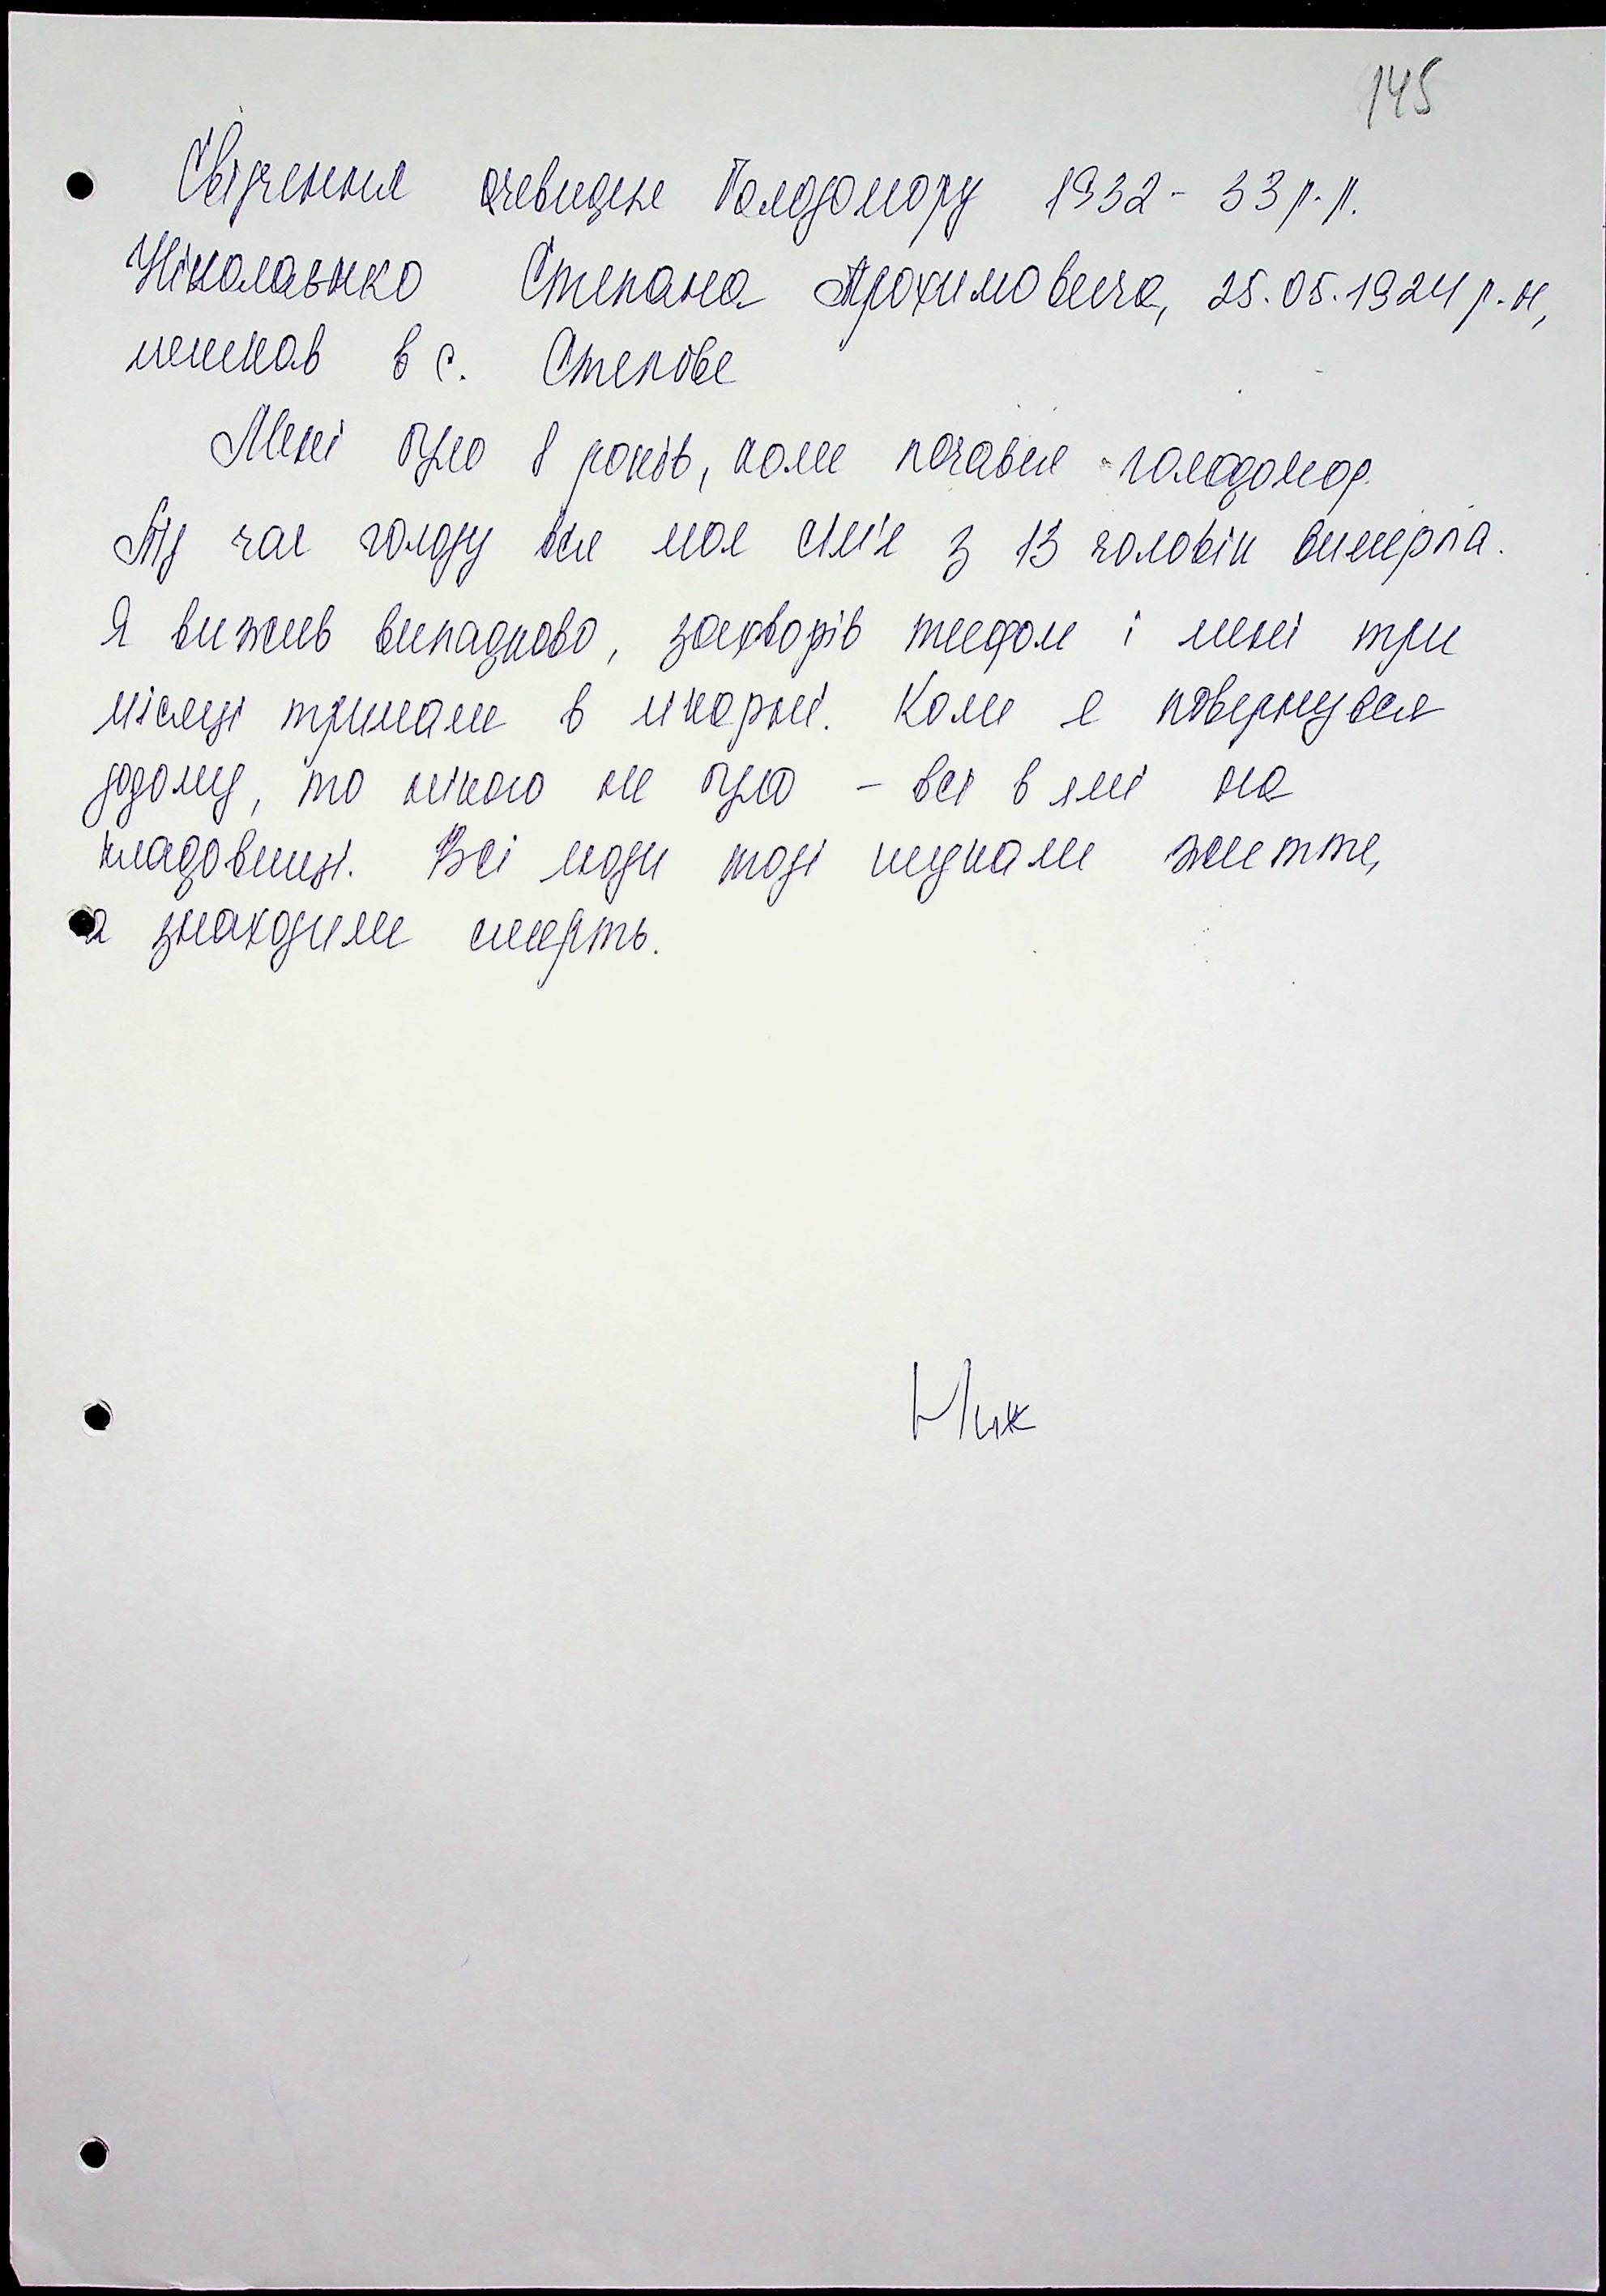 145
Свідчення очевидця Голодомору 1932-33 р.р.
Ніколаєнко Степана Трохимовича, 25.05.1924 р.н,
мешкав в с. Степове
Мені було 8 років, коли почався голодомор.
Під час голоду вся моя сім'я з 13 чоловік вимерла.
Я вижив випадково, захворів тифом і мені три
місяці тримали в лікарні. Коли я повернувся
додому, то нікого не було - всі в ямі на
кладовищі. Всі люди тоді шукали життя,
а знаходили смерть.